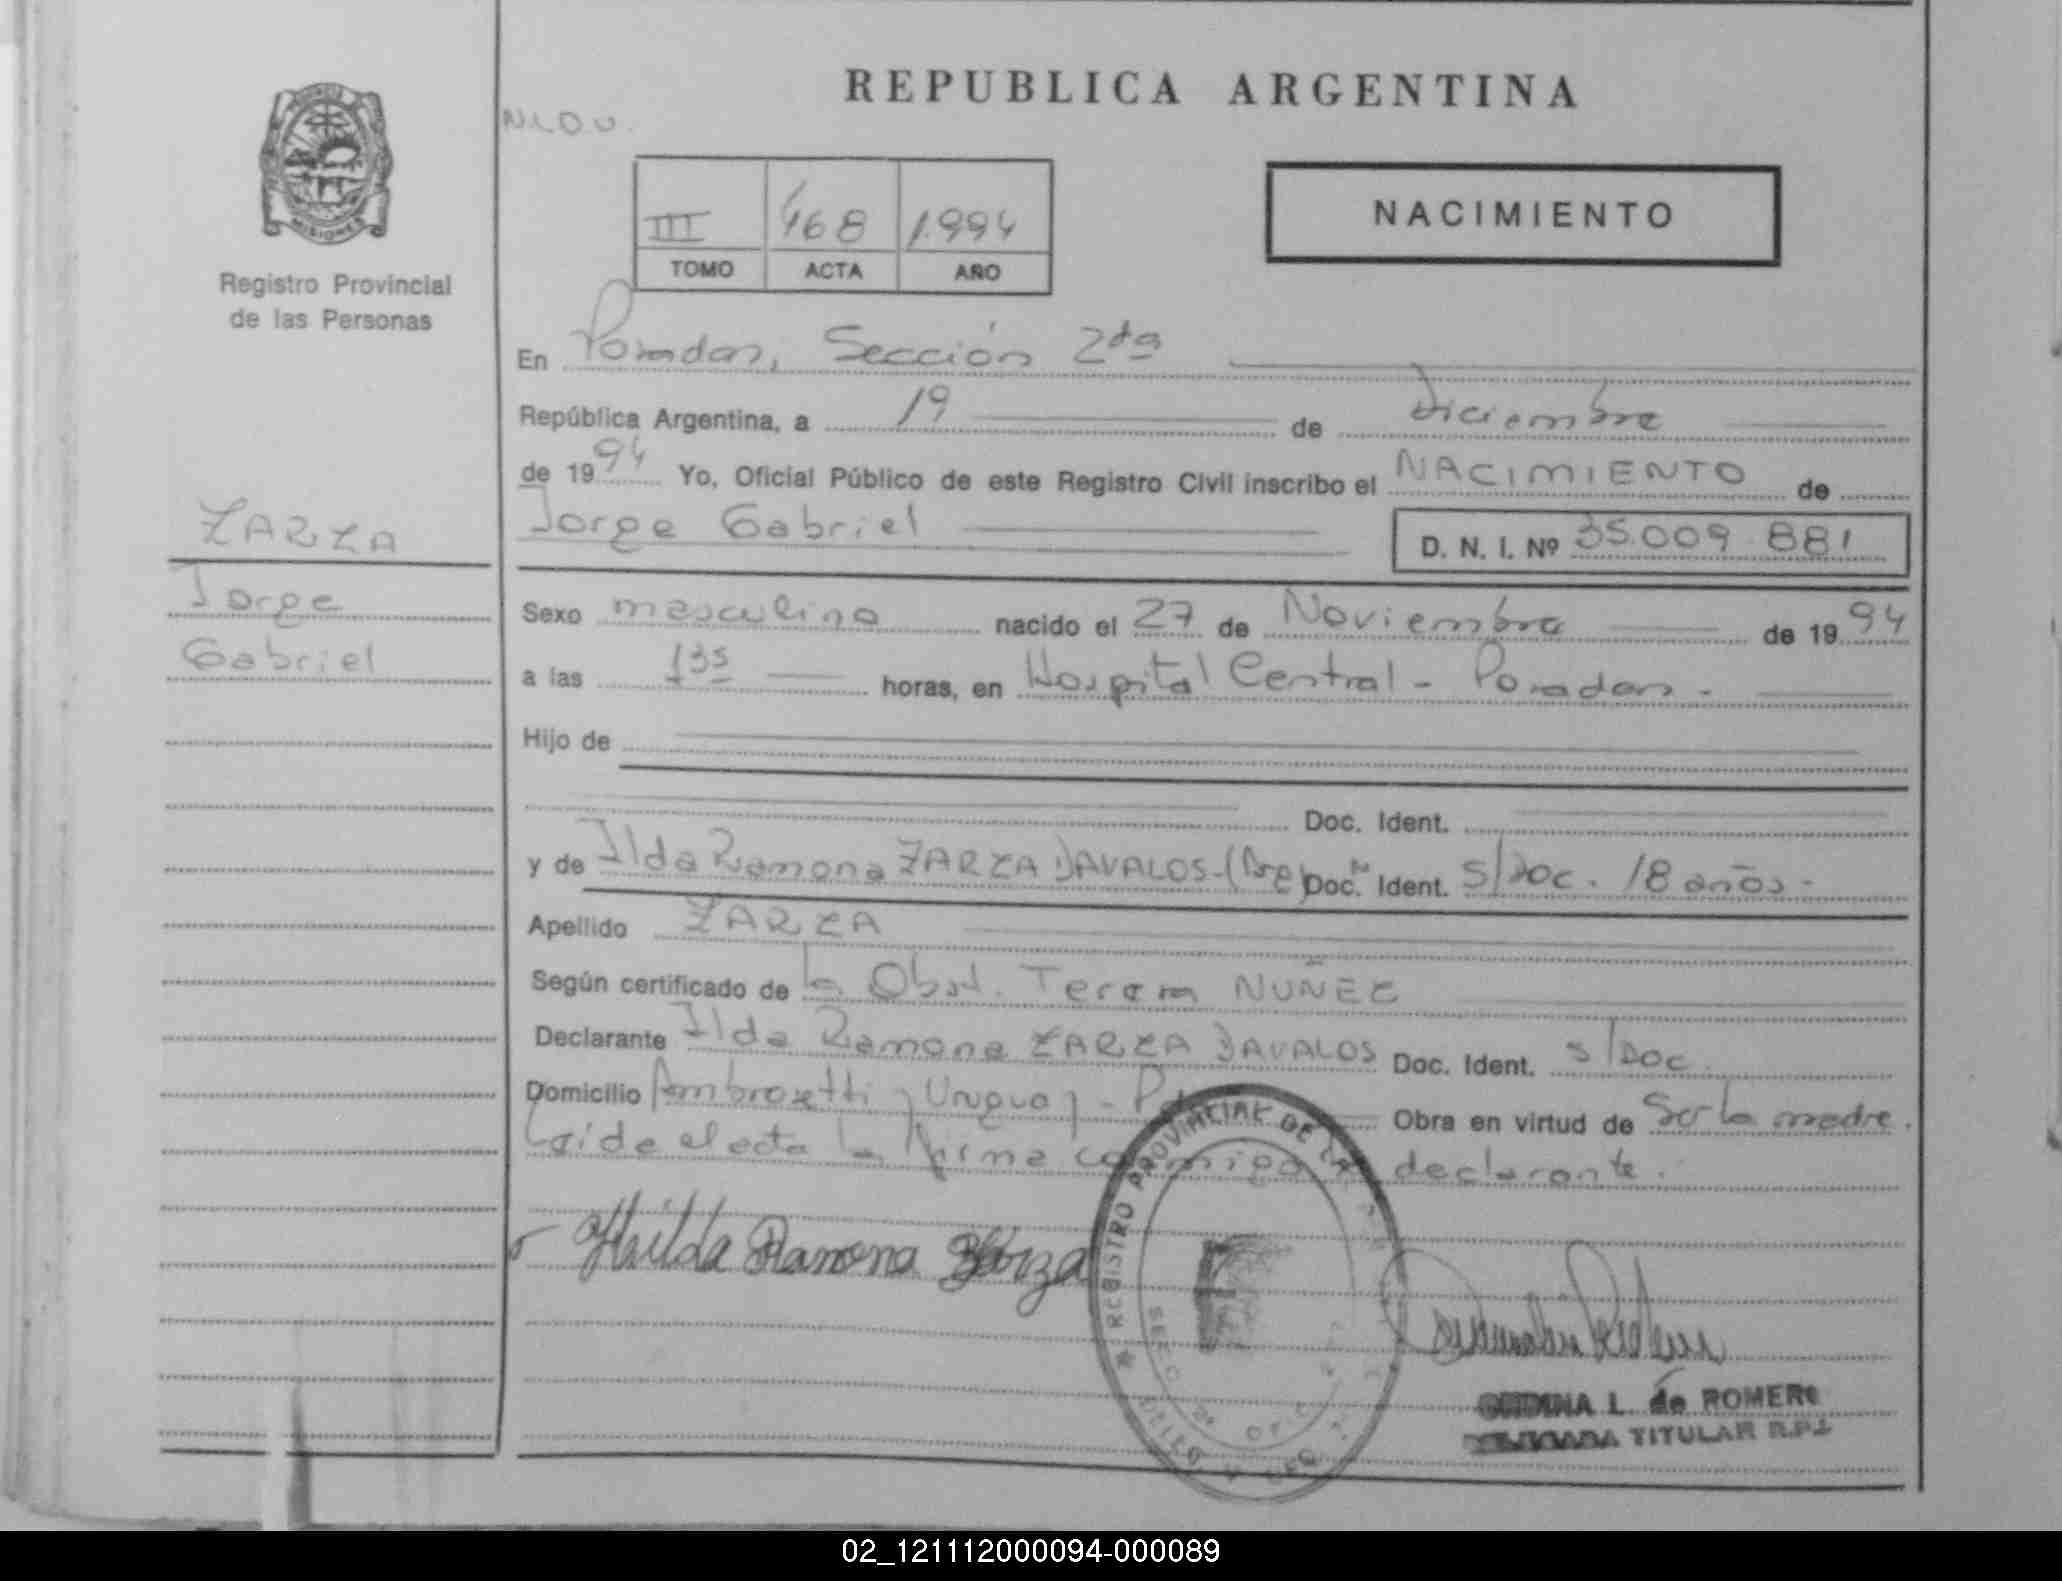 REPUBLICA ARGENTINA
MISIONES
Registro Provincial
de las Personas
III 468 1.994
TOMO ACTA AÑO
NACIMIENTO
En Posadas, Sección 2da
República Argentina, a 19 de Diciembre
de 1994 Yo, Oficial Público de este Registro Civil inscribo el NACIMIENTO de
Jorge Gabriel
D. N. I. Nº 35.009.881
ZARZA
Jorge
Gabriel
Sexo masculino nacido el 27 de Noviembre de 1994
a las 135 horas, en Hospital Central - Posadas -
Hijo de
Doc. Ident.
y de Ilda Ramona ZARZA DAVALOS- Doc. Ident. S/Doc. 18 años -
Apellido ZARZA
Según certificado de la Obst. Teresa NUÑEZ
Declarante Ilda Ramona ZARZA DAVALOS Doc. Ident. S/Doc.
Domicilio Ambrosetti y Uruguay - Obra en virtud de Ser la madre.
Leída el acta la firma conmigo la declarante.
Hilda Ramona Zarza
REGISTRO PROVINCIAL DE LAS
L. de ROMERO
TITULAR R.P.P.
02_121112000094-000089